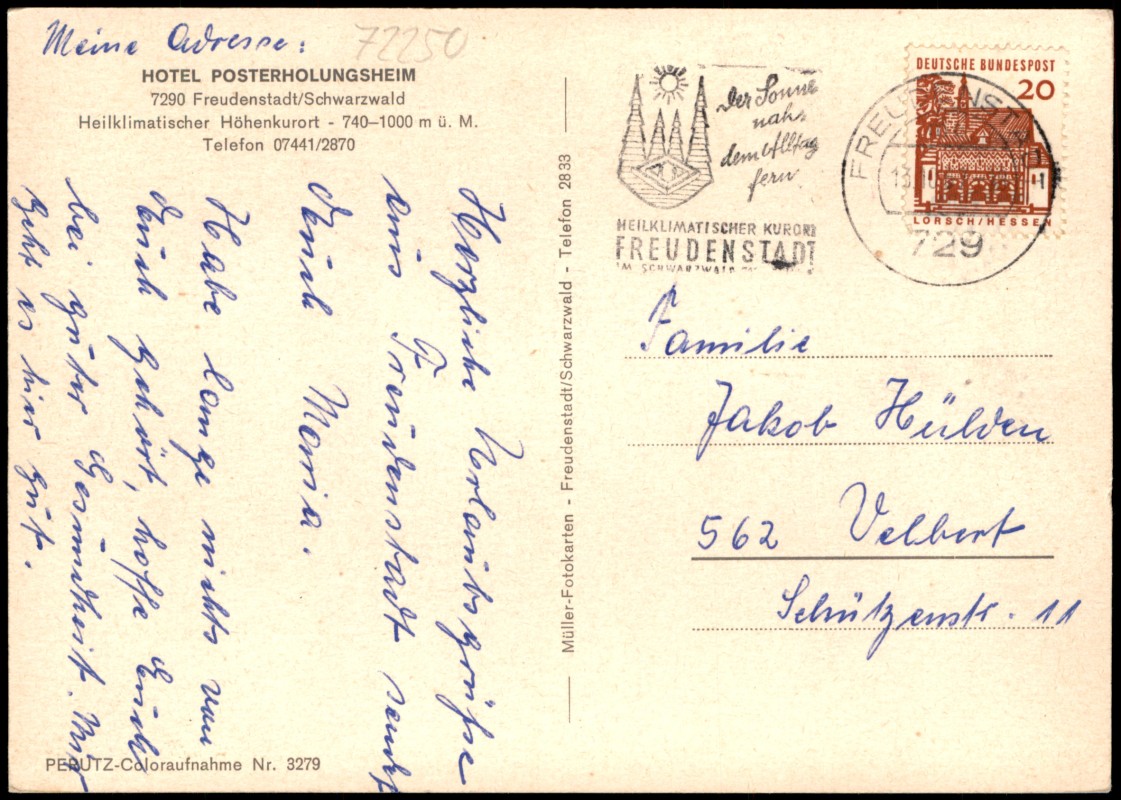 Meine Adresse:
72250
HOTEL POSTERHOLUNGSHEIM
7290 Freudenstadt/Schwarzwald
Heilklimatischer Höhenkurort - 740–1000 m ü. M.
Telefon 07441/2870
Herzliche Urlaubsgrüße
aus Freudenstadt sendet
Euch Maria.
Habe lange nichts von
Euch gehört, hoffe Euch
bei guter Gesundheit. Mir
geht es hier gut.
PERUTZ-Coloraufnahme Nr. 3279
Müller-Fotokarten - Freudenstadt/Schwarzwald - Telefon 2833
Der Sonne
nah,
dem Alltag
fern
HEILKLIMATISCHER KURORT
FREUDENSTADT
IM SCHWARZWALD
FREUDENSTADT
729
DEUTSCHE BUNDESPOST
20
LORSCH/HESSEN
Familie
Jakob Hülden
562 Velbert
Schützenstr. 11